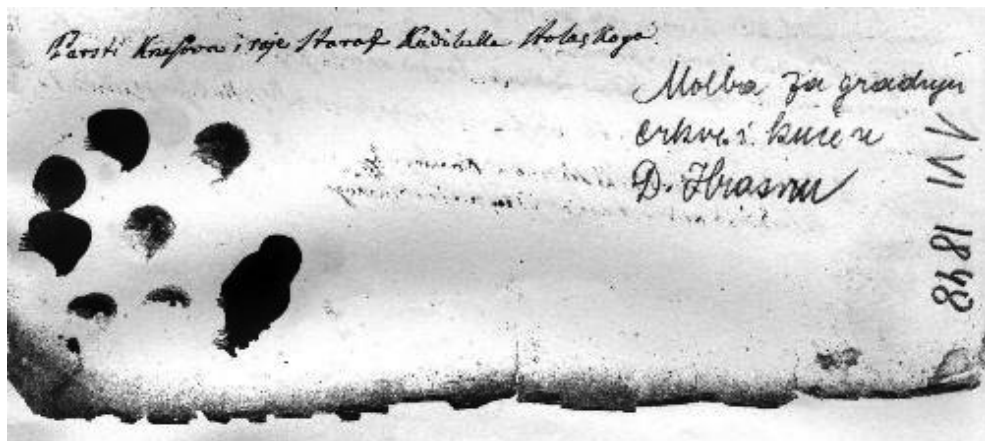 Parsti Knesova i raje Starag Kadiluka Stolaçkoga.
Molba za gradnju
crkve i kuće u
D. Hrasnu
1 VI 1848